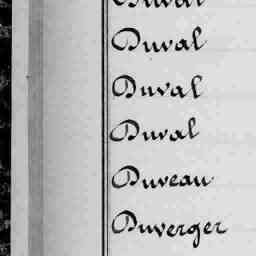 Duval
Duval
Duval
Duval
Duveau
Duverger